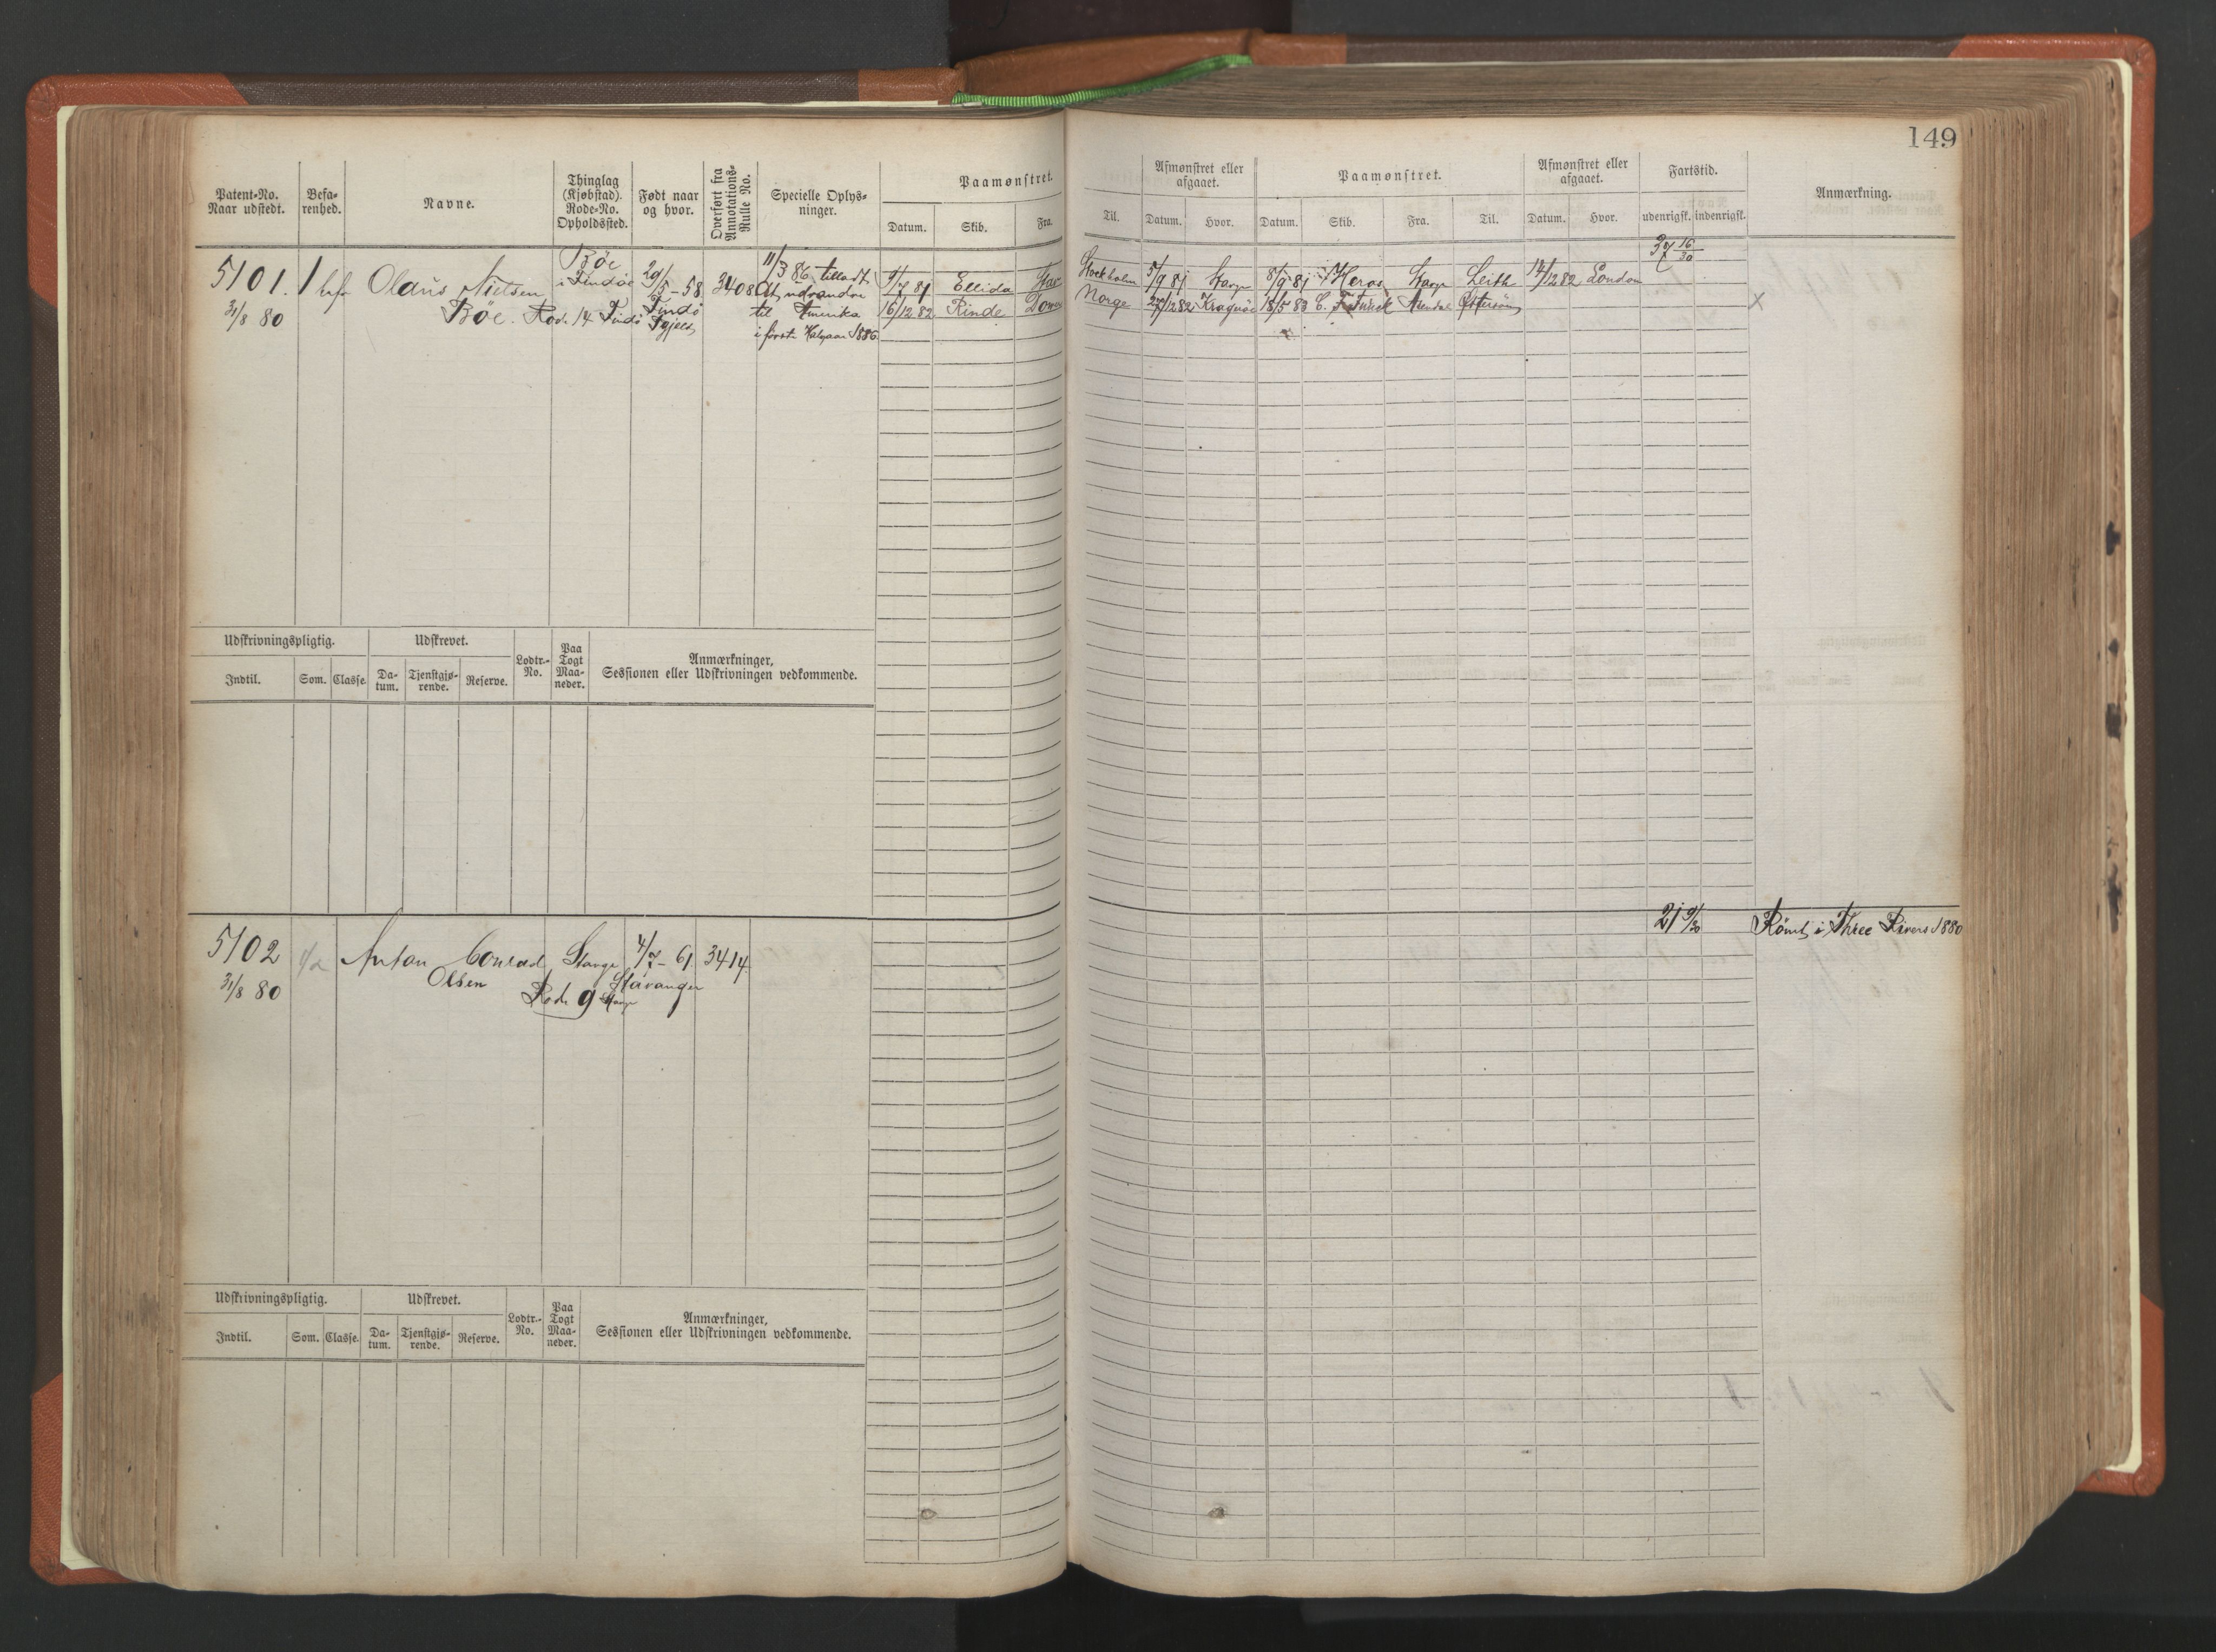 149
Patent-No. Naar udstedt.
Befarenhed.
Navne.
Thinglag (Kjøbstad). Rode-No. Opholdssted.
Født naar og hvor.
Overført fra Annotations-Rulle No.
Specielle Oplysninger.
Paamønstret.
Datum. Skib. Fra.
Til.
Afmønstret eller afgaaet.
Datum. Hvor.
Paamønstret.
Datum. Skib. Fra. Til.
Afmønstret eller afgaaet.
Datum. Hvor.
Fartstid.
udenrigsk. indenrigsk.
Anmærkning.
5101.
31/8 80
1 bef.
Olaüs Nielsen
Böe. Rode 14 Findö
Böe
i Findöe
29/5-58
Findö
3408
11/3 86 tilladt
At udvandre
til Amerika
i første Halvaar 1886.
9/7 81 Ellida Stav
Stockholm 5/9 81 Stavgr 8/9-81 Heros Stavgr Leith 14/12 82 London
37 16/30
16/12 82 Rinde Dover
Norge 27/12 82 Kragerö 18/5 83 Arendal Østersöen
X
Udskrivningspligtig.
Indtil. Som. Classe.
Udskrevet.
Datum. Tjenstgjørende. Reserve.
Lodtr.-No.
Paa Togt Maaneder.
Anmærkninger, Sessionen eller Udskrivningen vedkommende.
5102
31/8 80
Anton Conrad
Olsen
Stavgr
Rode 9 Stavgr
4/7-61
Stavanger
3414
21 9/30
Römt i Three Rivers 1880
Udskrivningspligtig.
Indtil. Som. Classe.
Udskrevet.
Datum. Tjenstgjørende. Reserve.
Lodtr.-No.
Paa Togt Maaneder.
Anmærkninger, Sessionen eller Udskrivningen vedkommende.